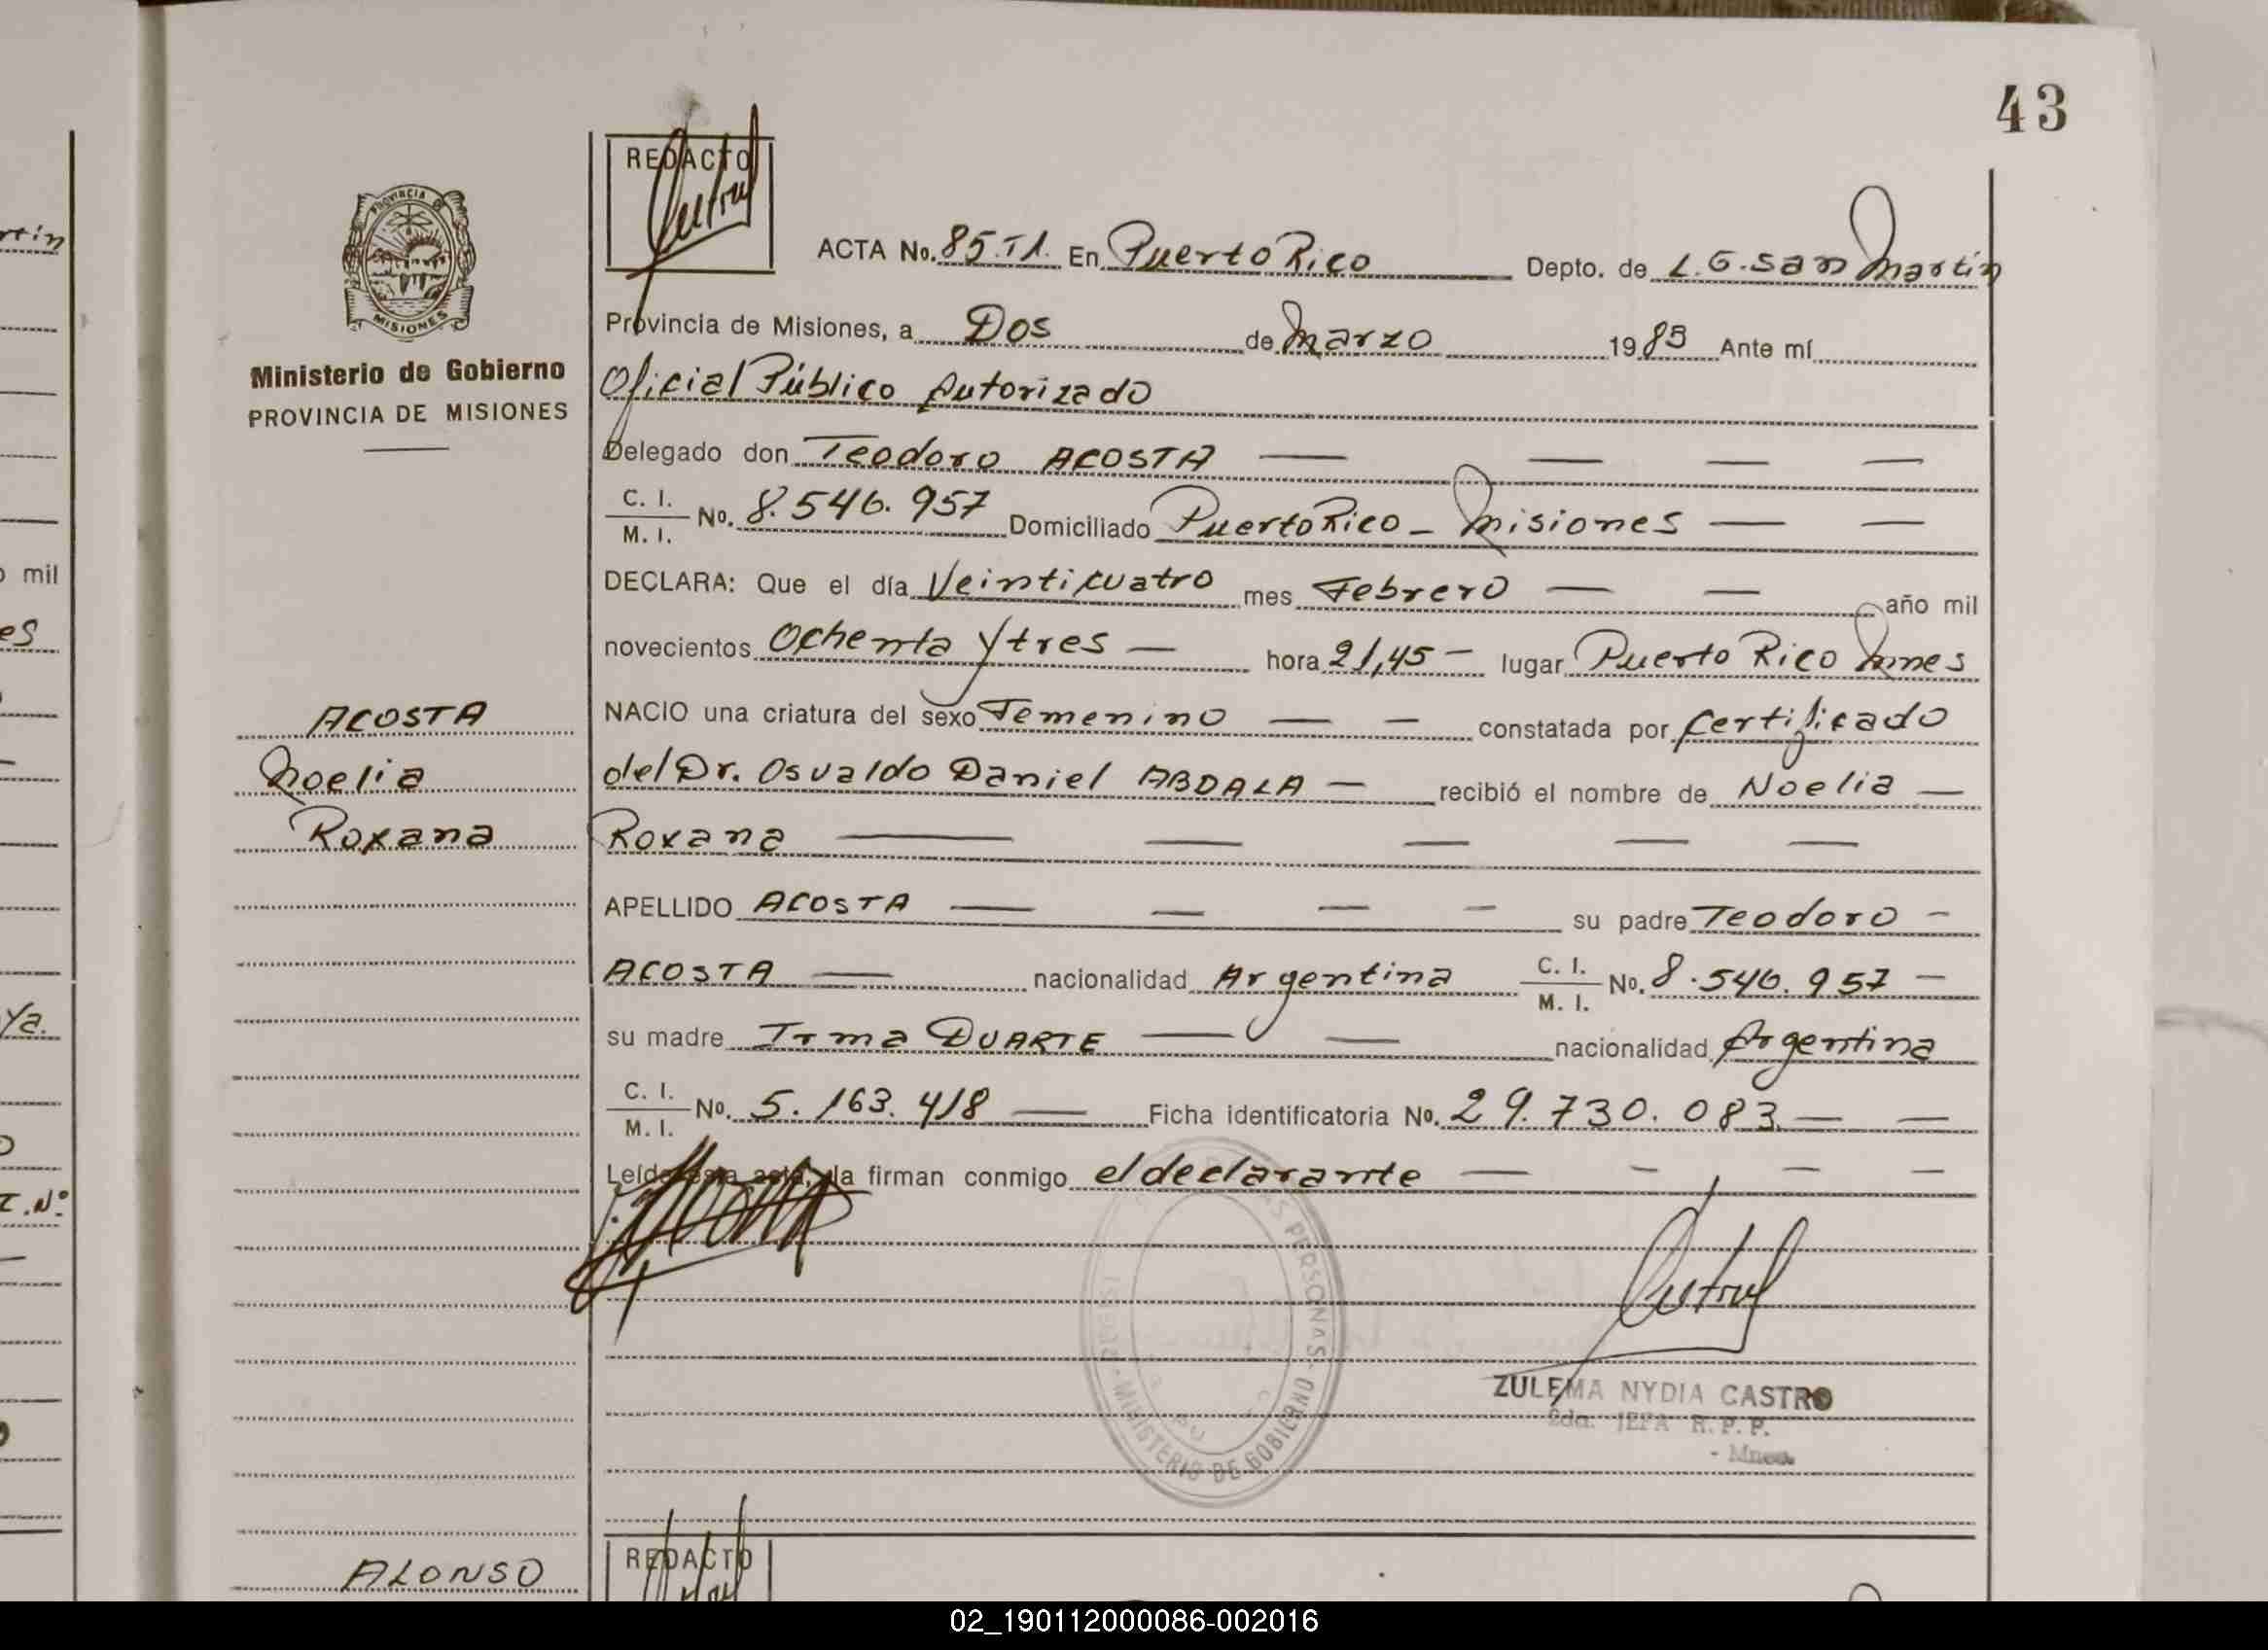 43
REDACTO
PROVINCIA DE
MISIONES
Ministerio de Gobierno
PROVINCIA DE MISIONES
ACTA No. 85.T1. En Puerto Rico Depto. de L.G. San Martín
Provincia de Misiones, a Dos de Marzo 1983 Ante mí
Oficial Público Autorizado
Delegado don Teodoro ACOSTA — — — —
C. I. / M. I. No. 8.546.957 Domiciliado Puerto Rico - Misiones — —
DECLARA: Que el día Veinticuatro mes Febrero — — año mil
novecientos Ochenta y tres — hora 21,45 - lugar Puerto Rico Mnes
NACIO una criatura del sexo Femenino — — constatada por Certificado
del Dr. Osvaldo Daniel ABDALA — recibió el nombre de Noelia —
Roxana — — — — —
APELLIDO ACOSTA — — — — su padre Teodoro -
ACOSTA — nacionalidad Argentina C. I. / M. I. No. 8.546.957 —
su madre Irma DUARTE — — nacionalidad Argentina
C. I. / M. I. No. 5.163.418 — Ficha identificatoria No. 29.730.083 — —
Leída esta acta, la firman conmigo el declarante — - — —
ACOSTA
Noelia
Roxana
PERSONAS - MINISTERIO DE GOBIERNO
ZULEMA NYDIA CASTRO
JEFA R. P. P.
- Mnes.
ALONSO
REDACTO
rtín
o mil
es
ya.
I. Nº
02_190112000086-002016